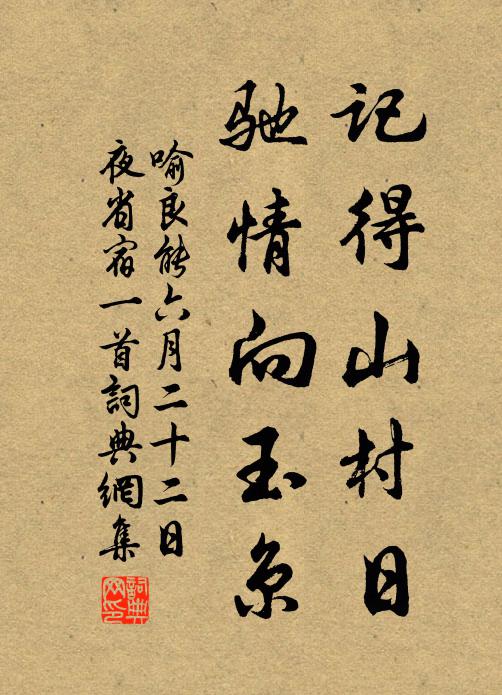 記得山村日
馳情向玉京
喻良能六月二十二日
夜省宿一首詞典網集
詞典
网印